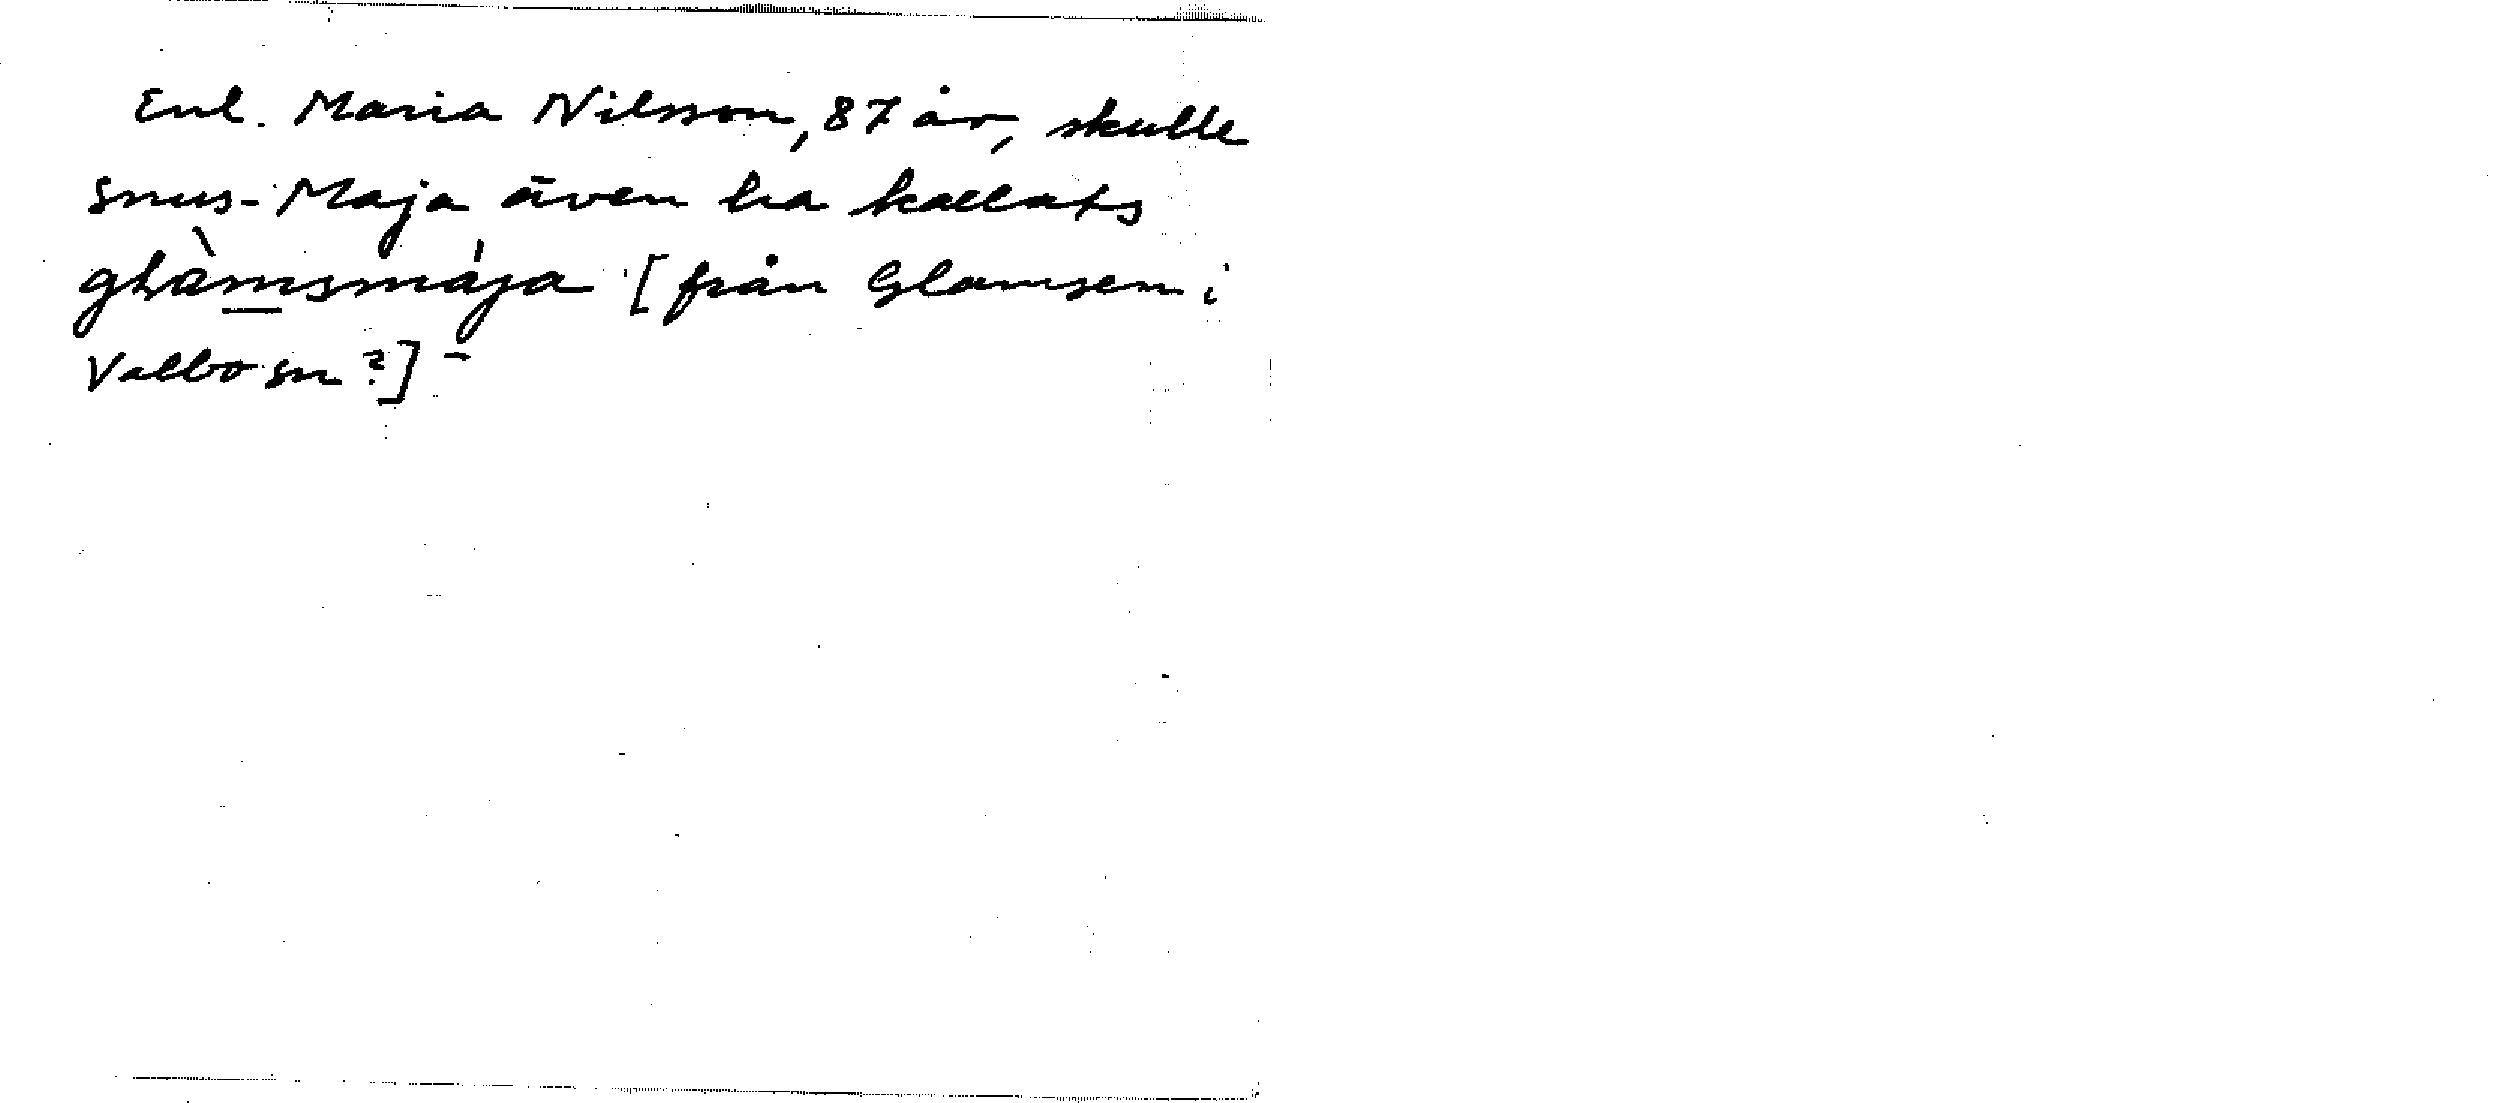 Enl. Maria Nilsson, 87 år, skulle
Snus-Maja även ha kallats
glàmsmája [från Glamsen i
Valbo sn?] -